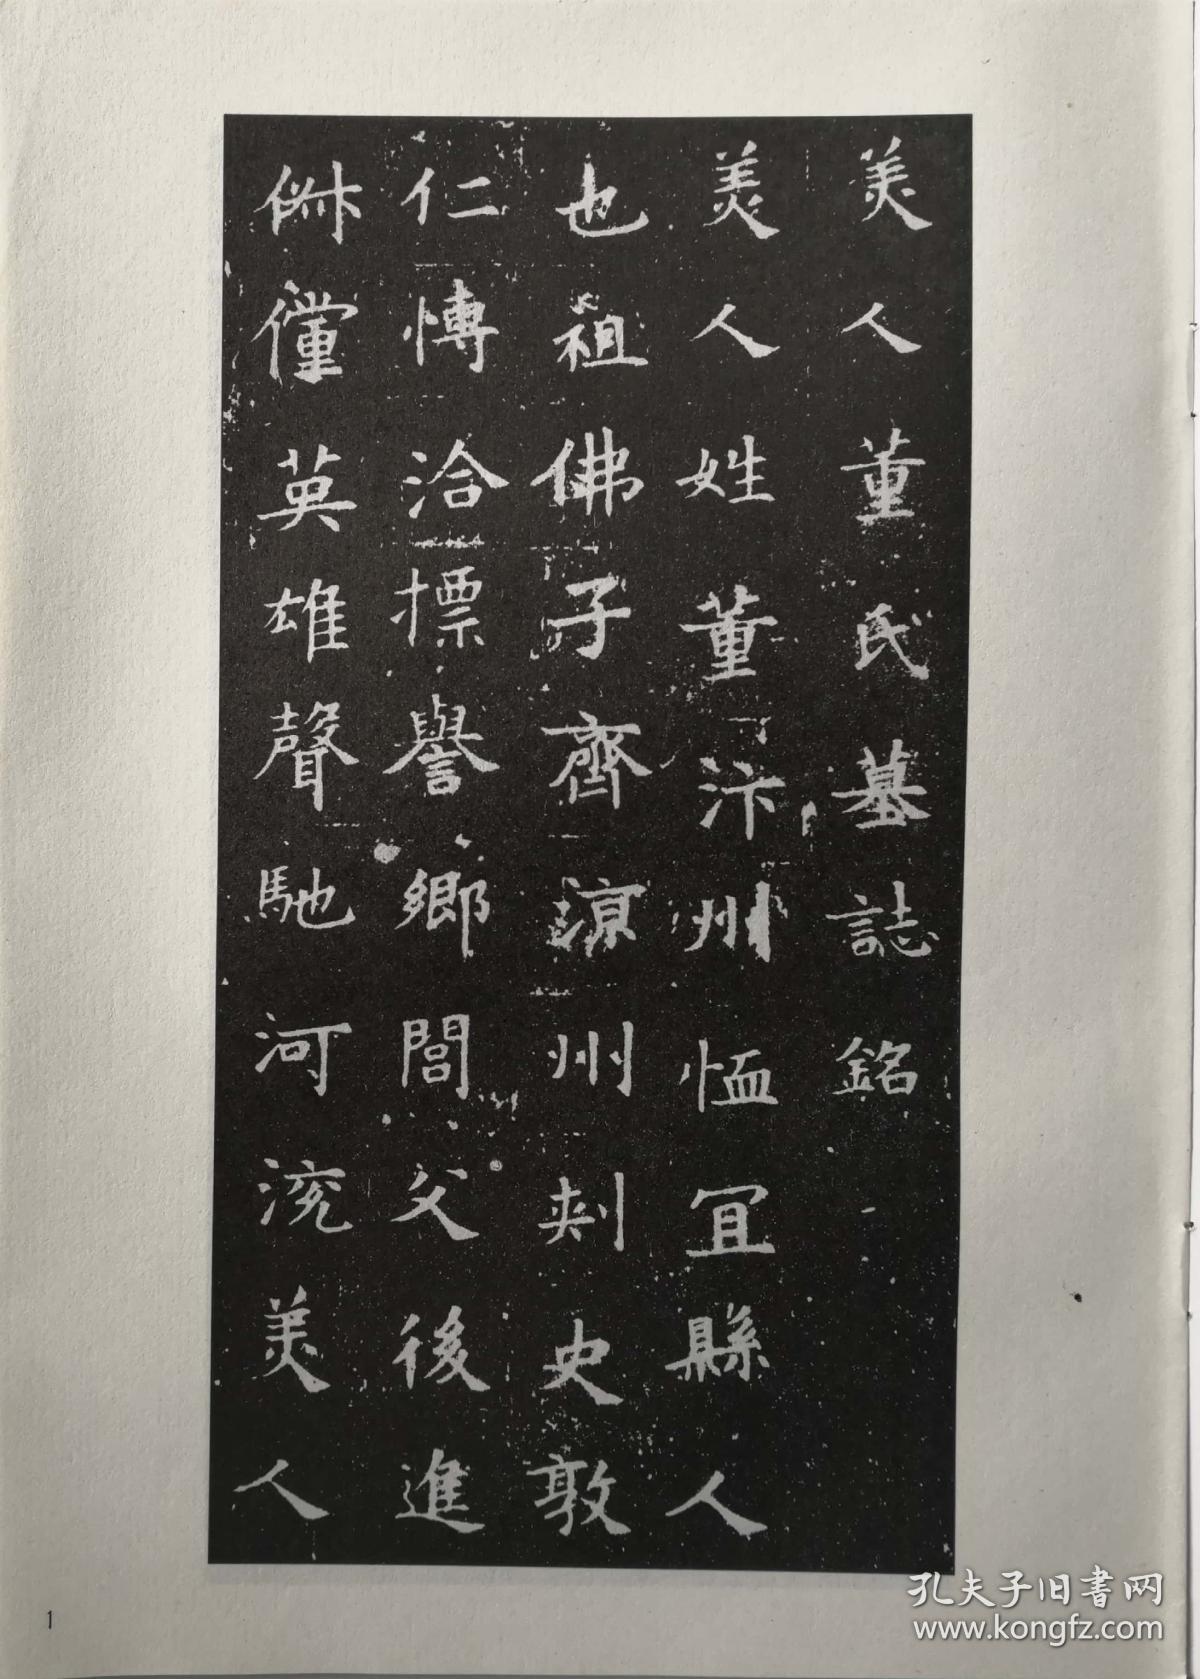 美人董氏墓誌銘
美人姓董汴州恤冝縣人
也祖佛子齊涼州刾史敦
仁博洽摽譽鄉閭父後進
俶儻英雄聲馳河沇美人
1
孔夫子旧书网
www.kongfz.com